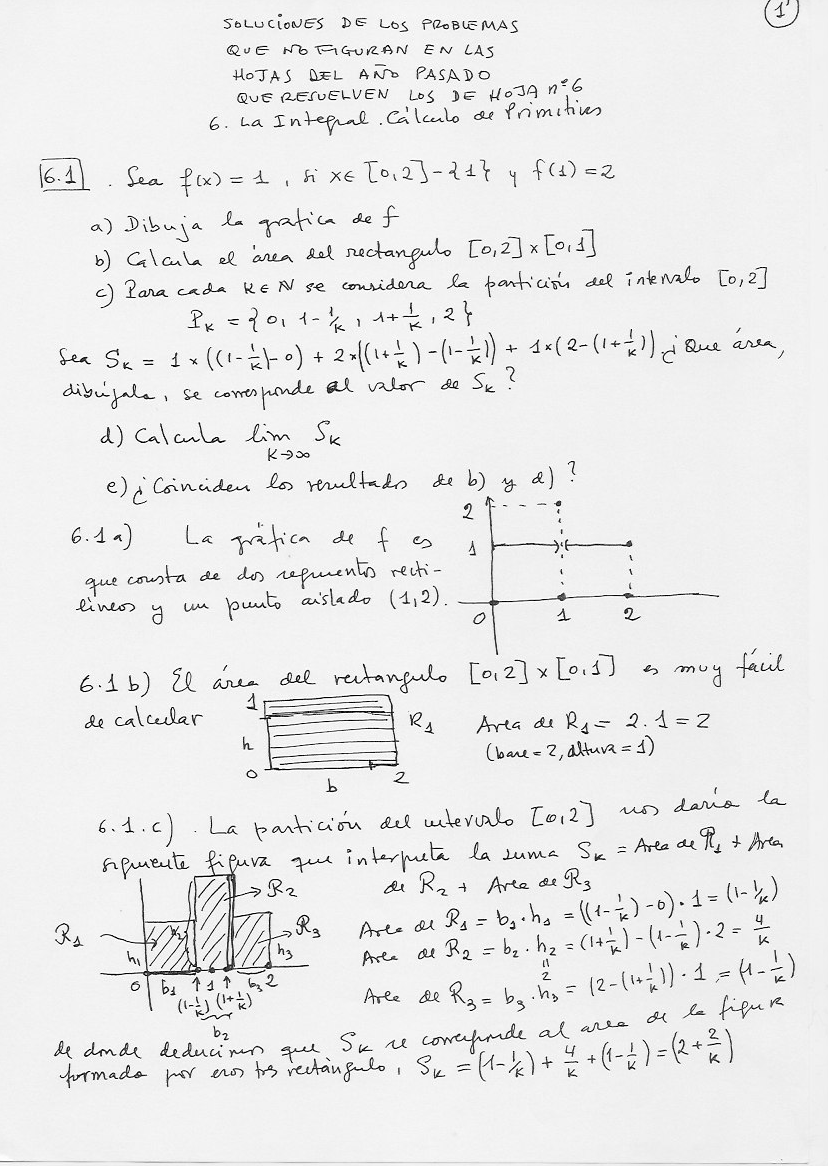 1'
SOLUCIONES DE LOS PROBLEMAS
QUE NO FIGURAN EN LAS
HOJAS DEL AÑO PASADO
QUE RESUELVEN LOS DE HOJA nº6
6. La Integral. Cálculo de Primitivas
6.1 . Sea f(x) = 1 , si x∈ [0,2]-{1} y f(1)=2
a) Dibuja la gráfica de f
b) Calcula el área del rectangulo [0,2]×[0,1]
c) Para cada K∈N se considera la partición del intervalo [0,2]
P_K = {0, 1-1/K, 1+1/K, 2}
Sea S_K = 1×((1-1/K)-0) + 2×((1+1/K)-(1-1/K)) + 1×(2-(1+1/K)) ¿Que área,
dibújala, se corresponde al valor de S_K?
d) Calcula lim S_K
K→∞
e) ¿Coinciden los resultados de b) y d)?
6.1 a) La gráfica de f es
que consta de dos segmentos recti-
líneos y un punto aislado (1,2).
2
1
0 1 2
6.1 b) El área del rectangulo [0,2]×[0,1] es muy fácil
de calcular
1
h
0 b 2
R1
Area de R1 = 2.1 = 2
(base = 2, altura = 1)
6.1.c) . La partición del intervalo [0,2] nos daría la
siguiente figura que interpreta la suma S_K = Area de R1 + Area
de R2 + Area de R3
R1 h1 h2 R2 h3 R3
0 b1 1 b3 2
(1-1/K) (1+1/K)
b2
Area de R1 = b1·h1 = ((1-1/K)-0)·1 = (1-1/K)
Area de R2 = b2·h2 = (1+1/K)-(1-1/K)·2 = 4/K
"
2
Area de R3 = b3·h3 = (2-(1+1/K))·1 = (1-1/K)
de donde deducimos que S_K se corresponde al area de la figura
formada por esos tres rectángulo, S_K = (1-1/K) + 4/K + (1-1/K) = (2+2/K)